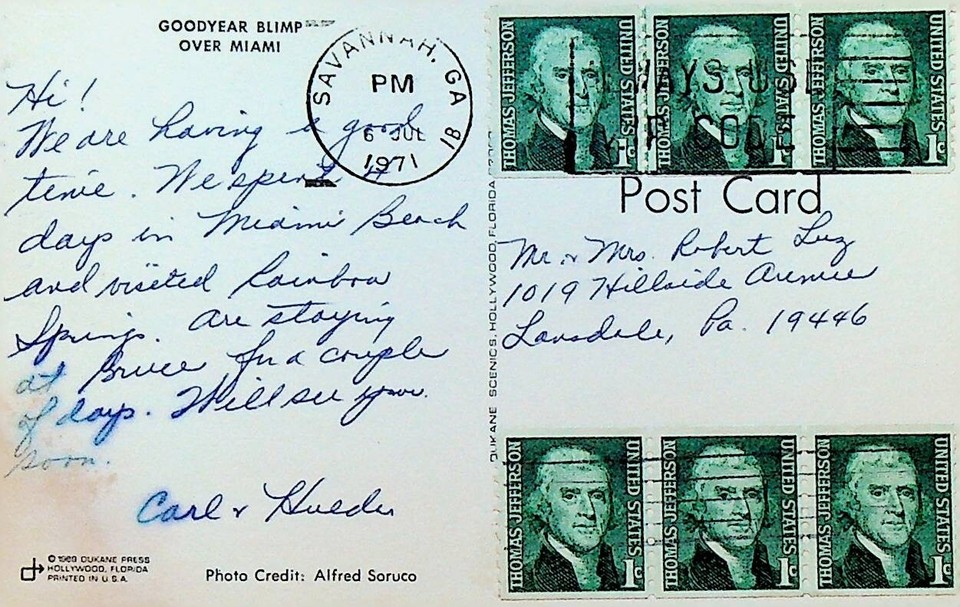 GOODYEAR BLIMP
OVER MIAMI
Hi!
We are having a good
time. We spent
days in Miami Beach
and visited Rainbow
Springs. Are staying
at Bruce for a couple
of days. Will see you
soon.
Carl &
© 1969 DUKANE PRESS
HOLLYWOOD, FLORIDA
PRINTED IN U.S.A.
Photo Credit: Alfred Soruco
SAVANNAH, GA
PM
6 JUL
1971
DUKANE SCENICS, HOLLYWOOD, FLORIDA
THOMAS JEFFERSON UNITED STATES 1c
THOMAS JEFFERSON UNITED STATES 1c
THOMAS JEFFERSON UNITED STATES 1c
ALWAYS USE
ZIP CODE
Post Card
Mr. & Mrs. Robert Luz
1019 Hillside Avenue
Lansdale, Pa. 19446
THOMAS JEFFERSON UNITED STATES 1c
THOMAS JEFFERSON UNITED STATES 1c
THOMAS JEFFERSON UNITED STATES 1c